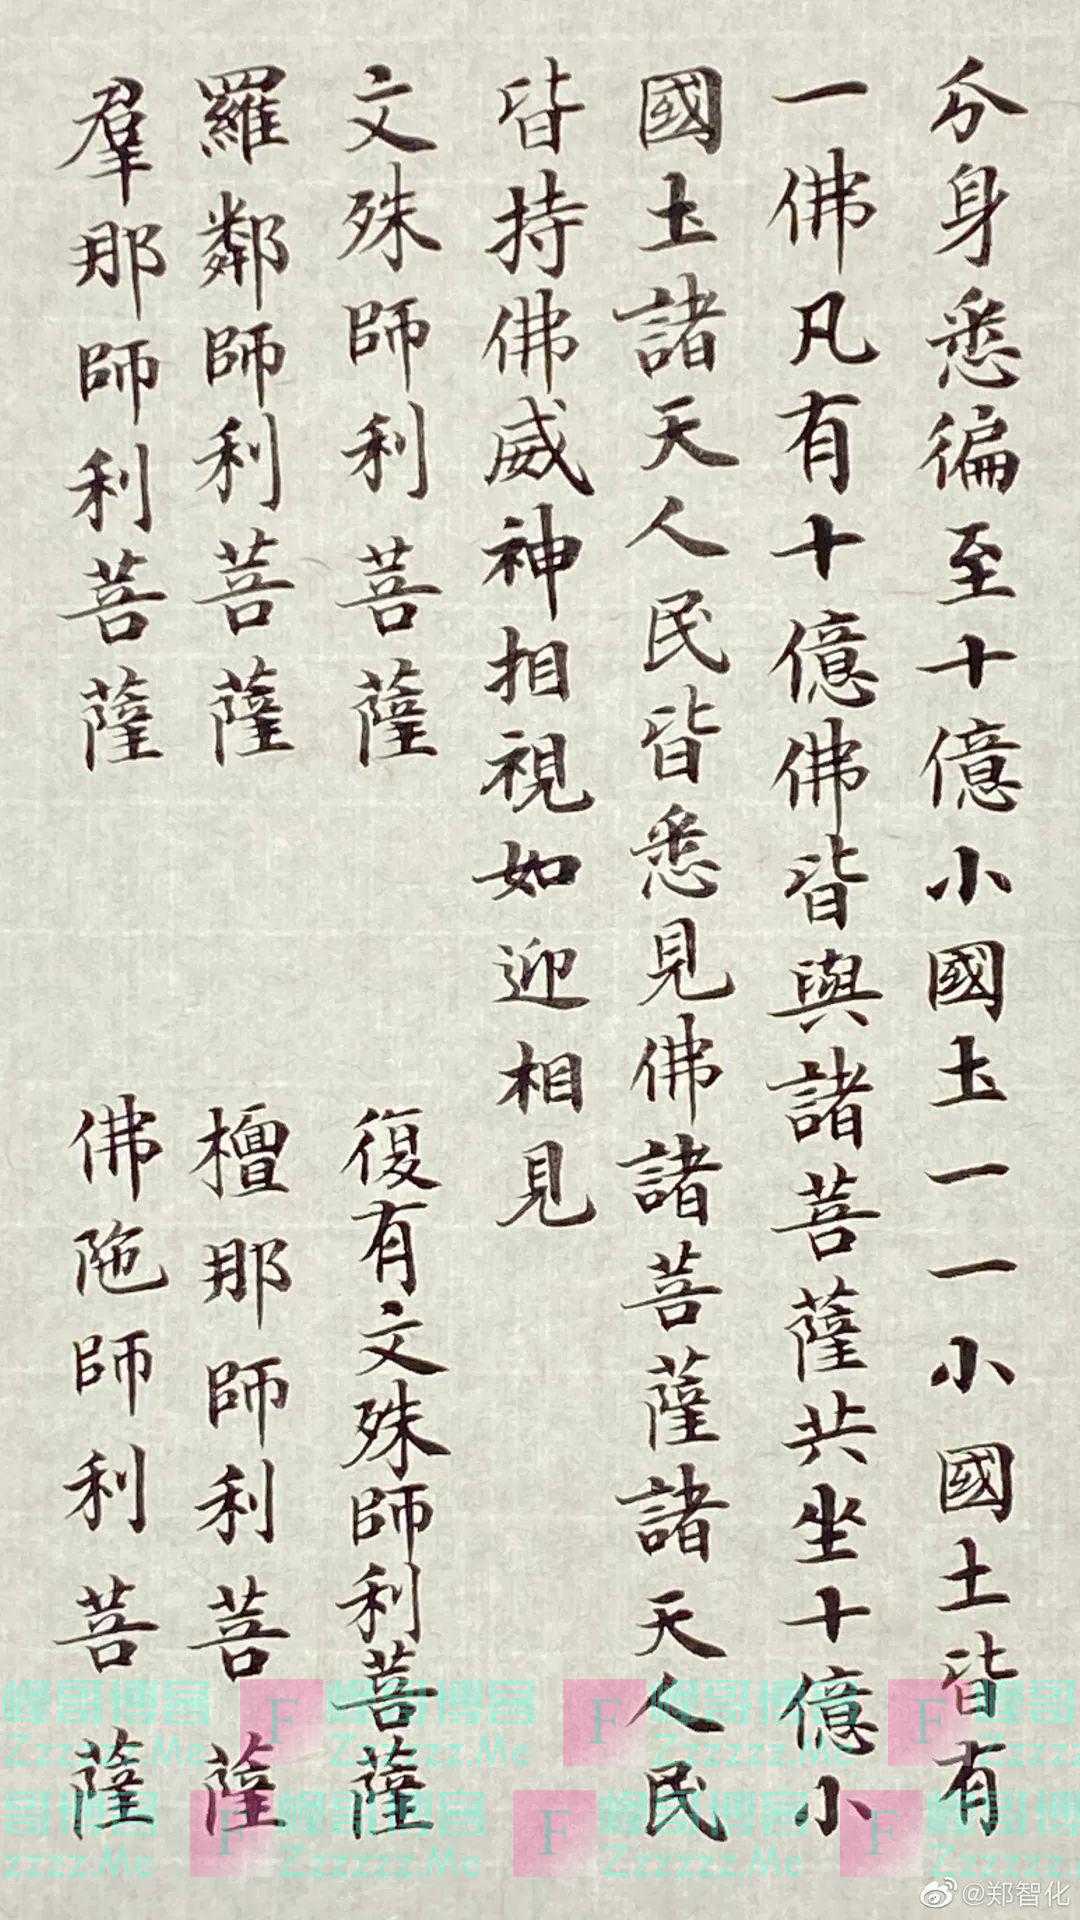 分身悉徧至十億小國土一一小國土皆有
一佛凡有十億佛皆與諸菩薩共坐十億小
國土諸天人民皆悉見佛諸菩薩諸天人民
皆持佛威神相視如迎相見
文殊師利菩薩 復有文殊師利菩薩
羅鄰師利菩薩 檀那師利菩薩
羣那師利菩薩 佛陁師利菩薩
峰哥博客
Zzzzzz.Me
F
@郑智化